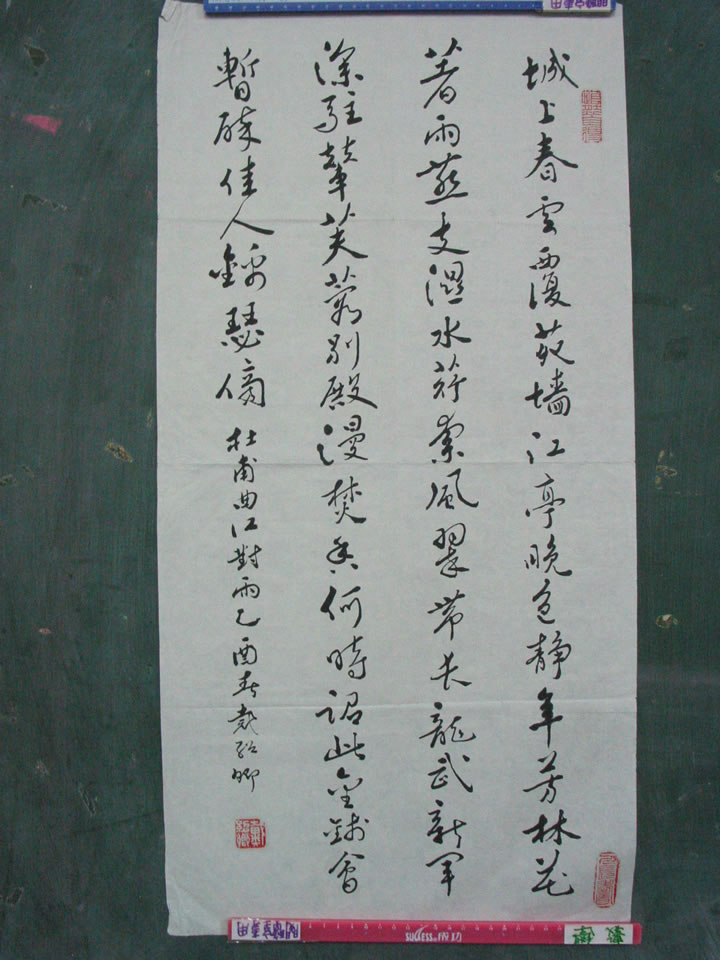 城上春雲覆苑墻江亭晚色靜年芳林花
著雨燕支濕水荇牽風翠帶長龍武新軍
深駐輦芙蓉別殿漫焚香何時詔此金錢會
暫醉佳人錦瑟傍 杜甫曲江對雨乙酉春戴紹卿
SUCCESS 成功